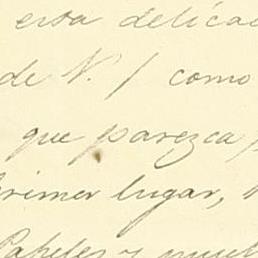 esa delica
de V. / como
que parezca
primer lugar,
Papeles y much